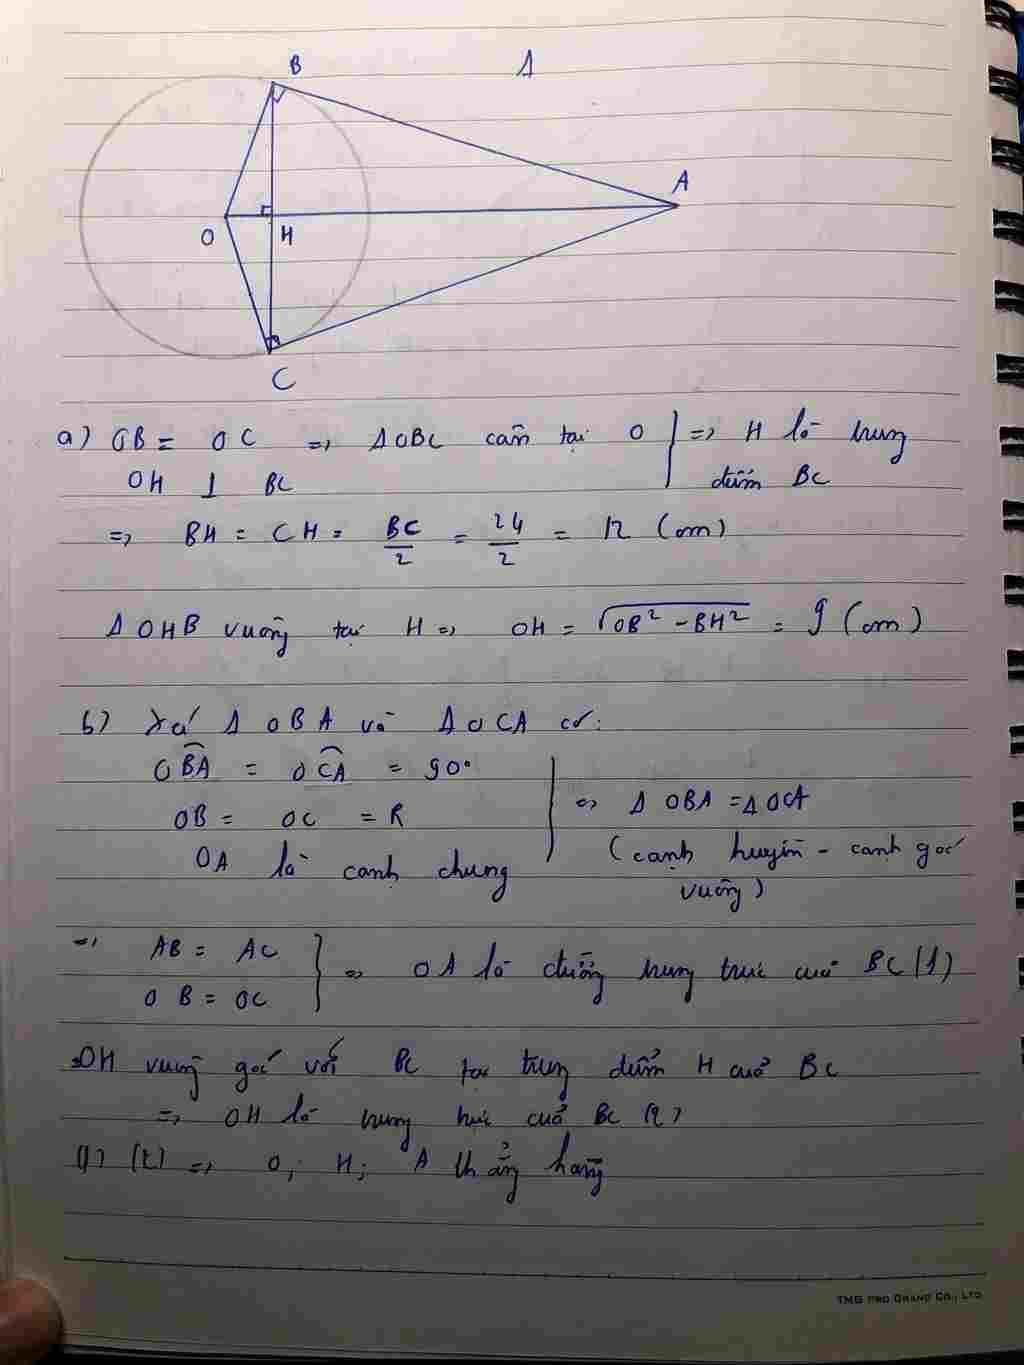 B
1
A
O
H
C
a) OB = OC => Δ OBC cân tại O => H là trung
OH ⊥ BC điểm BC
=> BH = CH = BC/2 = 24/2 = 12 (cm)
Δ OHB vuông tại H => OH = √(OB² - BH²) = 9 (cm)
b) Xét Δ OBA và Δ OCA có:
OBA = OCA = 90°
OB = OC = R => Δ OBA = Δ OCA
OA là cạnh chung (cạnh huyền - cạnh góc
vuông)
=> AB = AC
OB = OC => OA là đường trung trực của BC (1)
OH vuông góc với BC tại trung điểm H của BC
=> OH là trung trực của BC (2)
(1) (2) => O; H; A thẳng hàng
TMG PRO GRAND CO., LTD